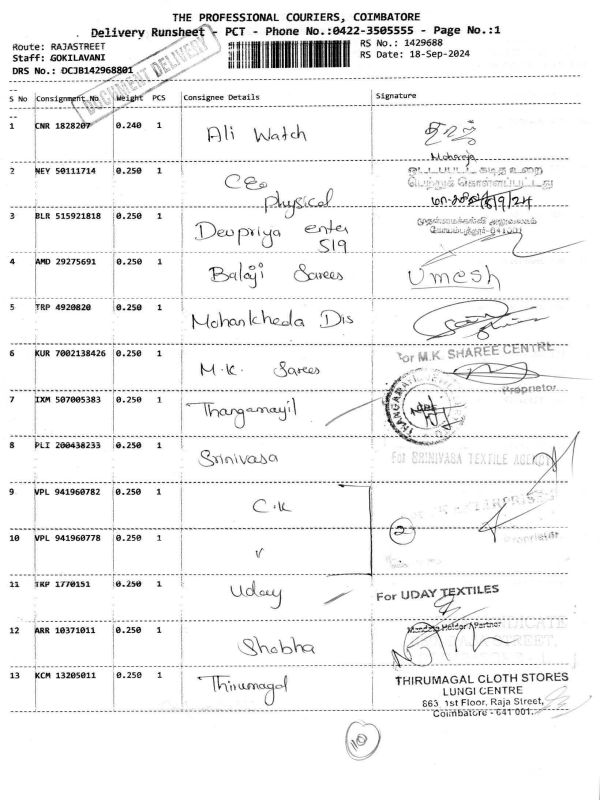 THE PROFESSIONAL COURIERS, COIMBATORE
Delivery Runsheet - PCT - Phone No.:0422-3505555 - Page No.:1
Route: RAJASTREET
RS No.: 1429688
Staff: GOKILAVANI
RS Date: 18-Sep-2024
DRS No.: DCJB142968801
DOCUMENT DELIVERY
S No Consignment No Weight PCS Consignee Details Signature
1 CNR 1828207 0.240 1 Ali Watch
Maharaja
2 NEY 50111714 0.250 1 CEO
physical
ஒட்டப்பட்ட கடித உறை
பெற்றுக் கொள்ளப்பட்டது
18/9/24
3 BLR 515921818 0.250 1 Devpriya enter
519
முதன்மைக்கல்வி அலுவலகம்
கோயம்புத்தூர்-641001
4 AMD 29275691 0.250 1 Balaji Sarees Umesh
5 TRP 4920820 0.250 1 Mohankheda Dis
6 KUR 7002138426 0.250 1 M.K. Sarees
For M.K. SHAREE CENTRE
Proprietor
7 IXM 507005383 0.250 1 Thangamayil
8 PLI 200438233 0.250 1 Srinivasa
For SRINIVASA TEXTILE AGENCY
9 VPL 941960782 0.250 1 C.K
10 VPL 941960778 0.250 1 v 2
Proprietor
11 TRP 1770151 0.250 1 Uday
For UDAY TEXTILES
Mandate Holder / Partner
12 ARR 10371011 0.250 1 Shobha
13 KCM 13205011 0.250 1 Thirumagal
THIRUMAGAL CLOTH STORES
LUNGI CENTRE
863 1st Floor, Raja Street,
Coimbatore - 641 001.
110